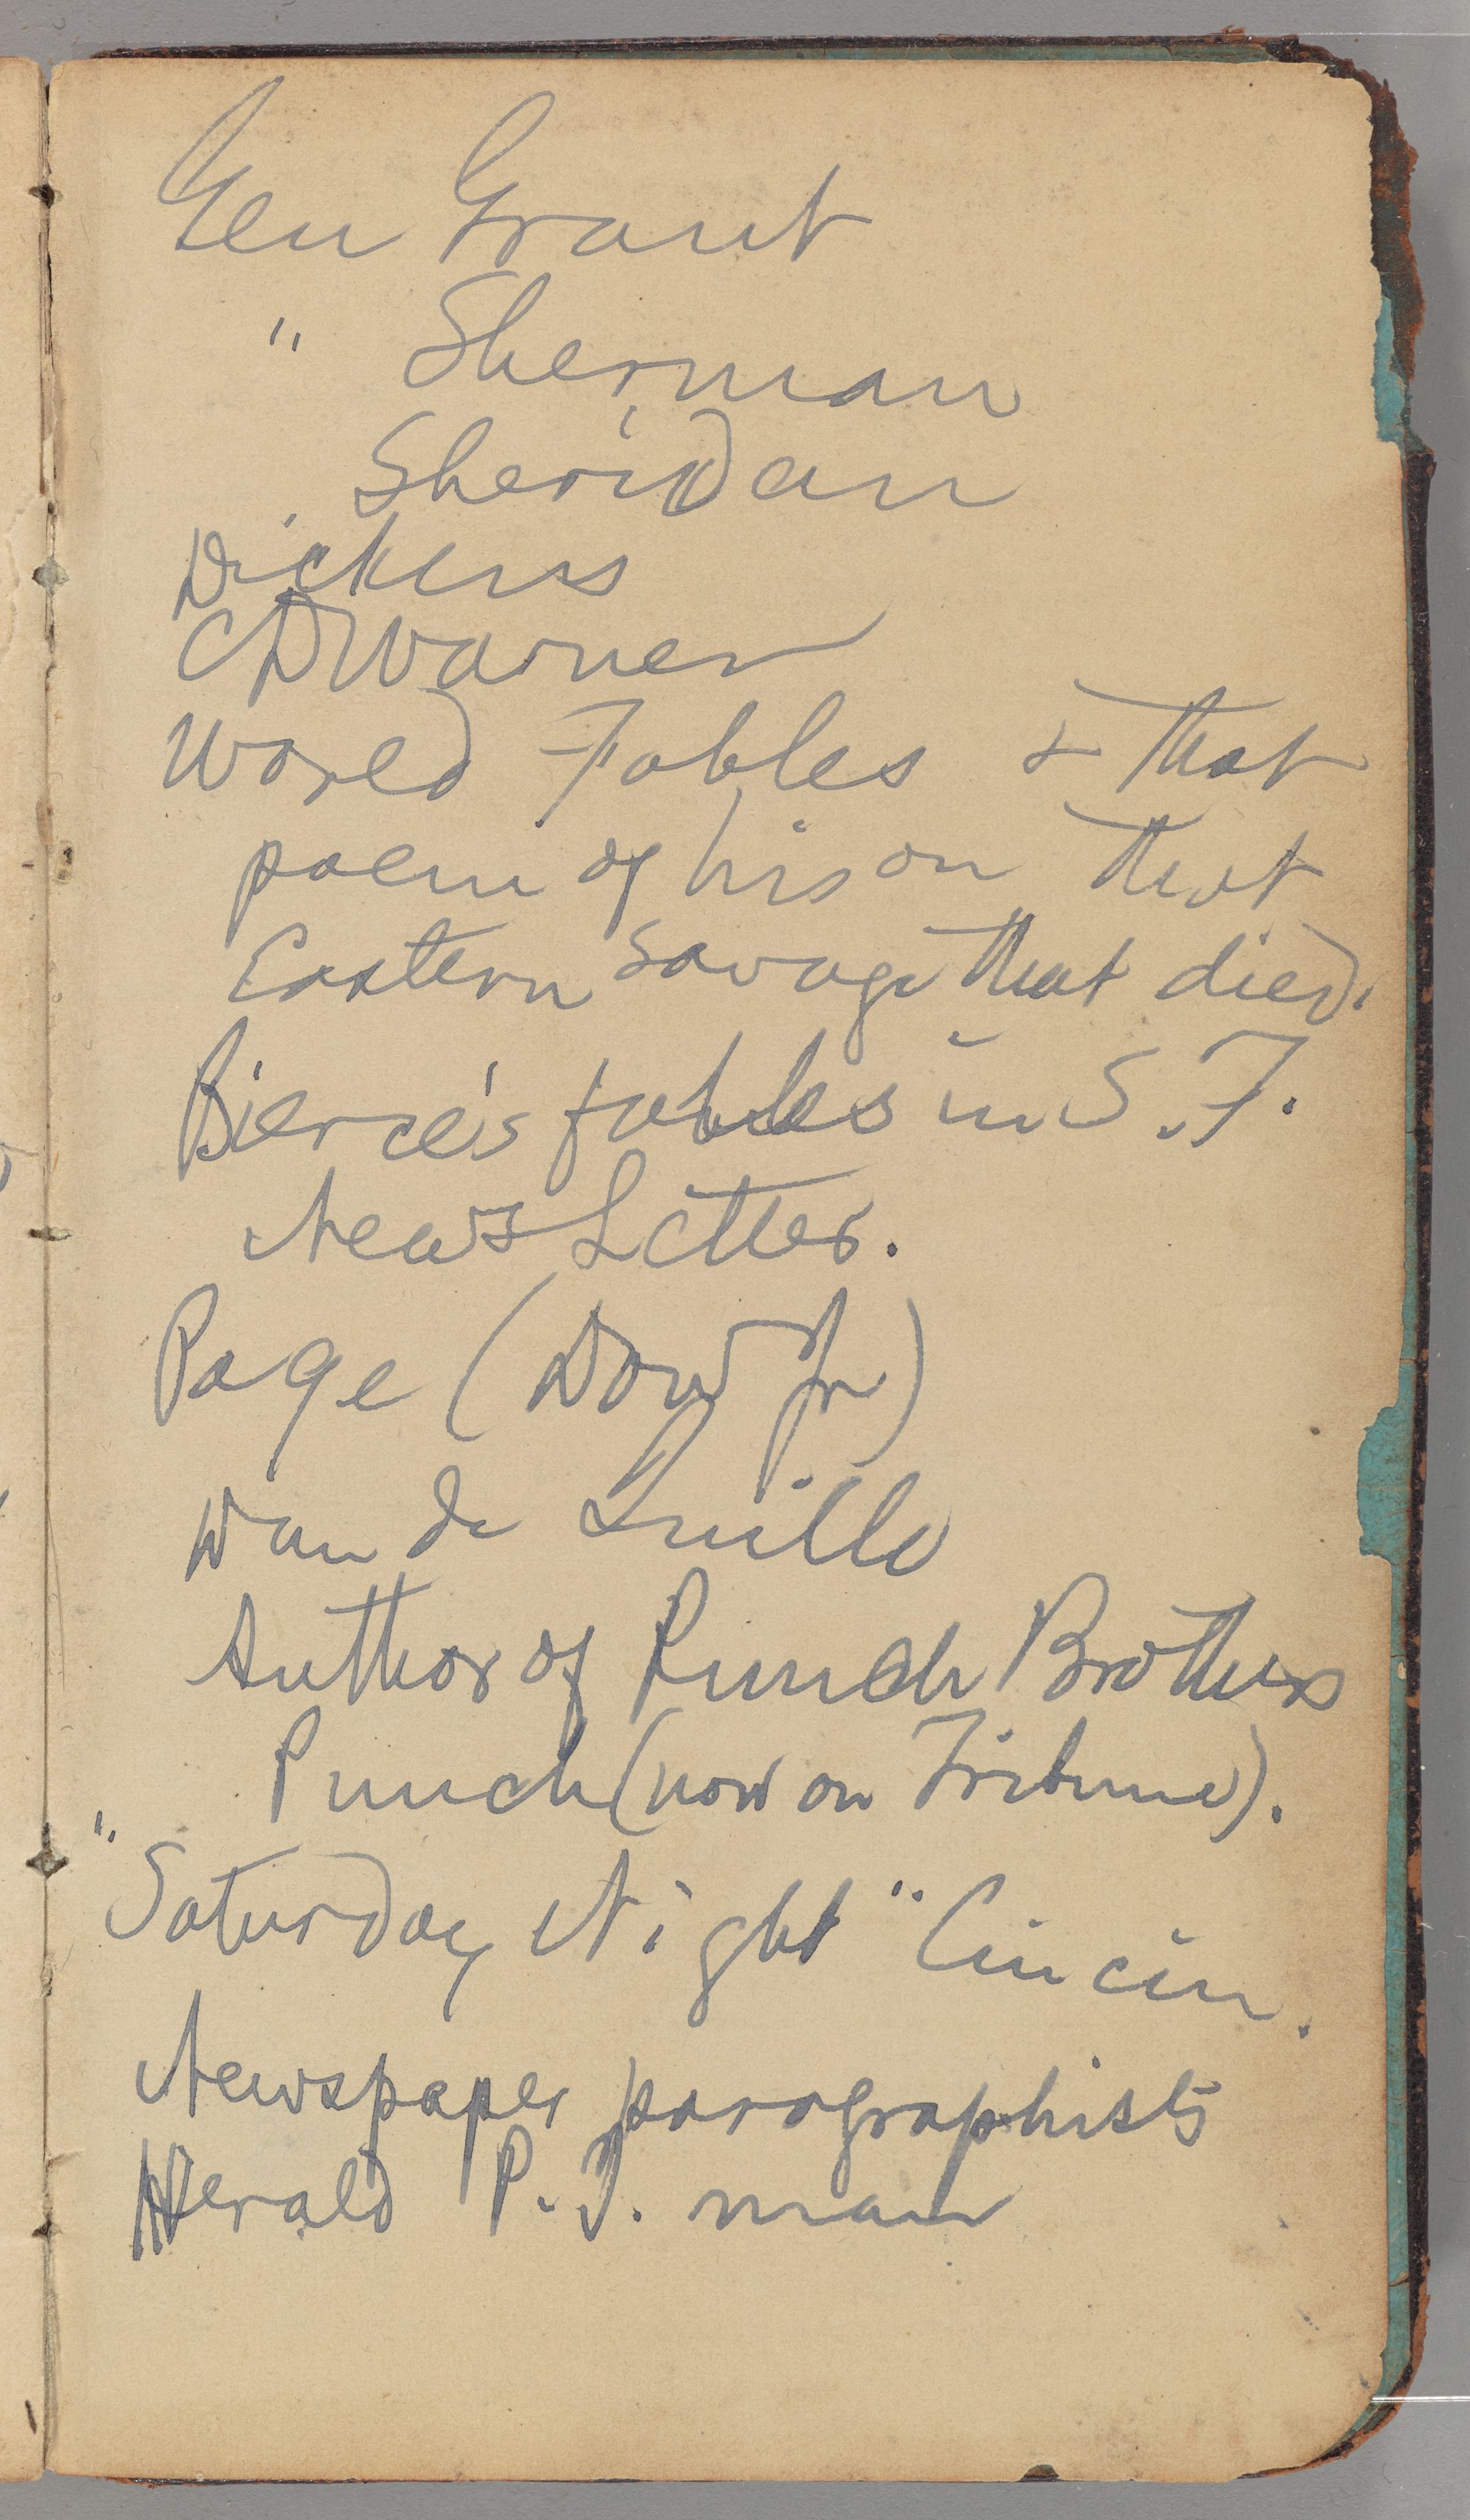 Gen Grant
" Sherman
Sheridan
Dickens
CDWarner
World Fables & that
poem of his on that
Eastern savage that died.
Bierce's fables in S.F.
News Letter.
Page (Dow Jr)
Dan de Quille
Author of Punch Brothers
Punch (now on Tribune).
"Saturday Night" Cincin.
Newspaper paragraphists
Herald P.I. man